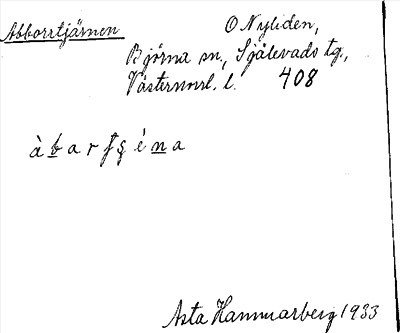 Abborrtjärnen
O Nyliden,
Björna sn., Själevads tg.,
Västernorrl. l. 408
àbarfşéna
Asta Hammarberg 1933